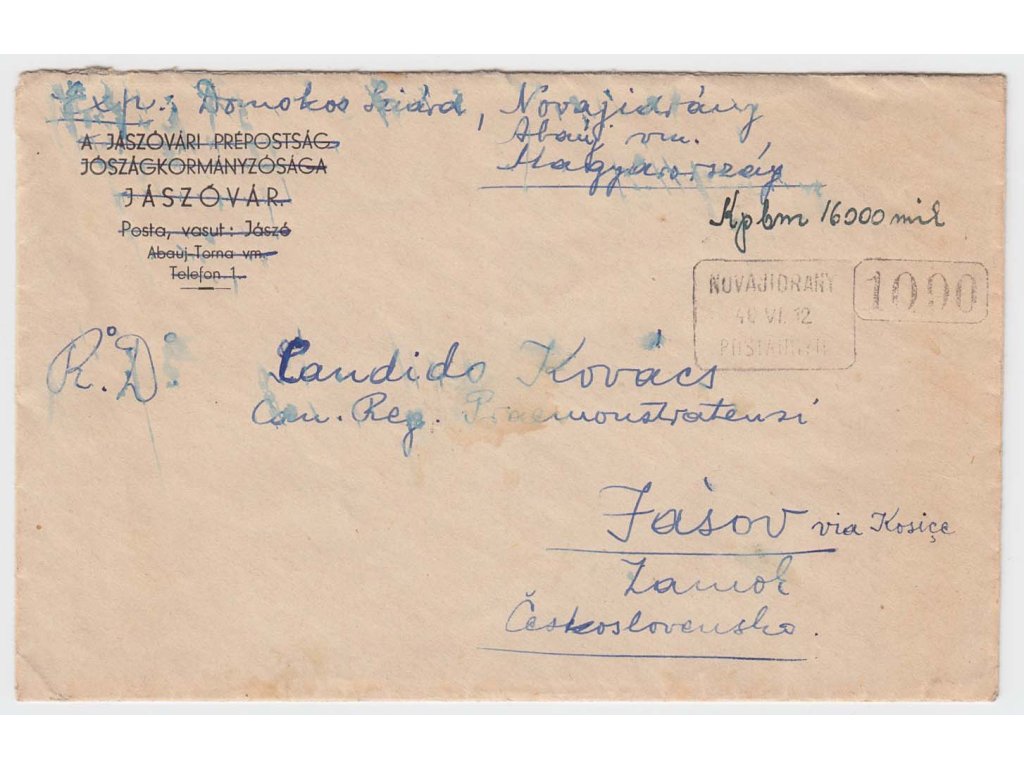 Exp.: Domokos Sziárd, Novajidrány
Abaúj vm.
Magyarország
A JÁSZÓVÁRI PRÉPOSTSÁG
JÓSZÁGKORMÁNYZÓSÁGA
JÁSZÓVÁR.
Posta, vasut: Jászó
Abaúj-Torna vm.
Telefon 1.
Kp bm 16000 mil
NOVAJIDRANY
46 VI. 12
1090
R.° D.°
Candido Kovács
Can. Reg. Praemonstratensi
Jásov via Kosiçe
Zamok
Československo.